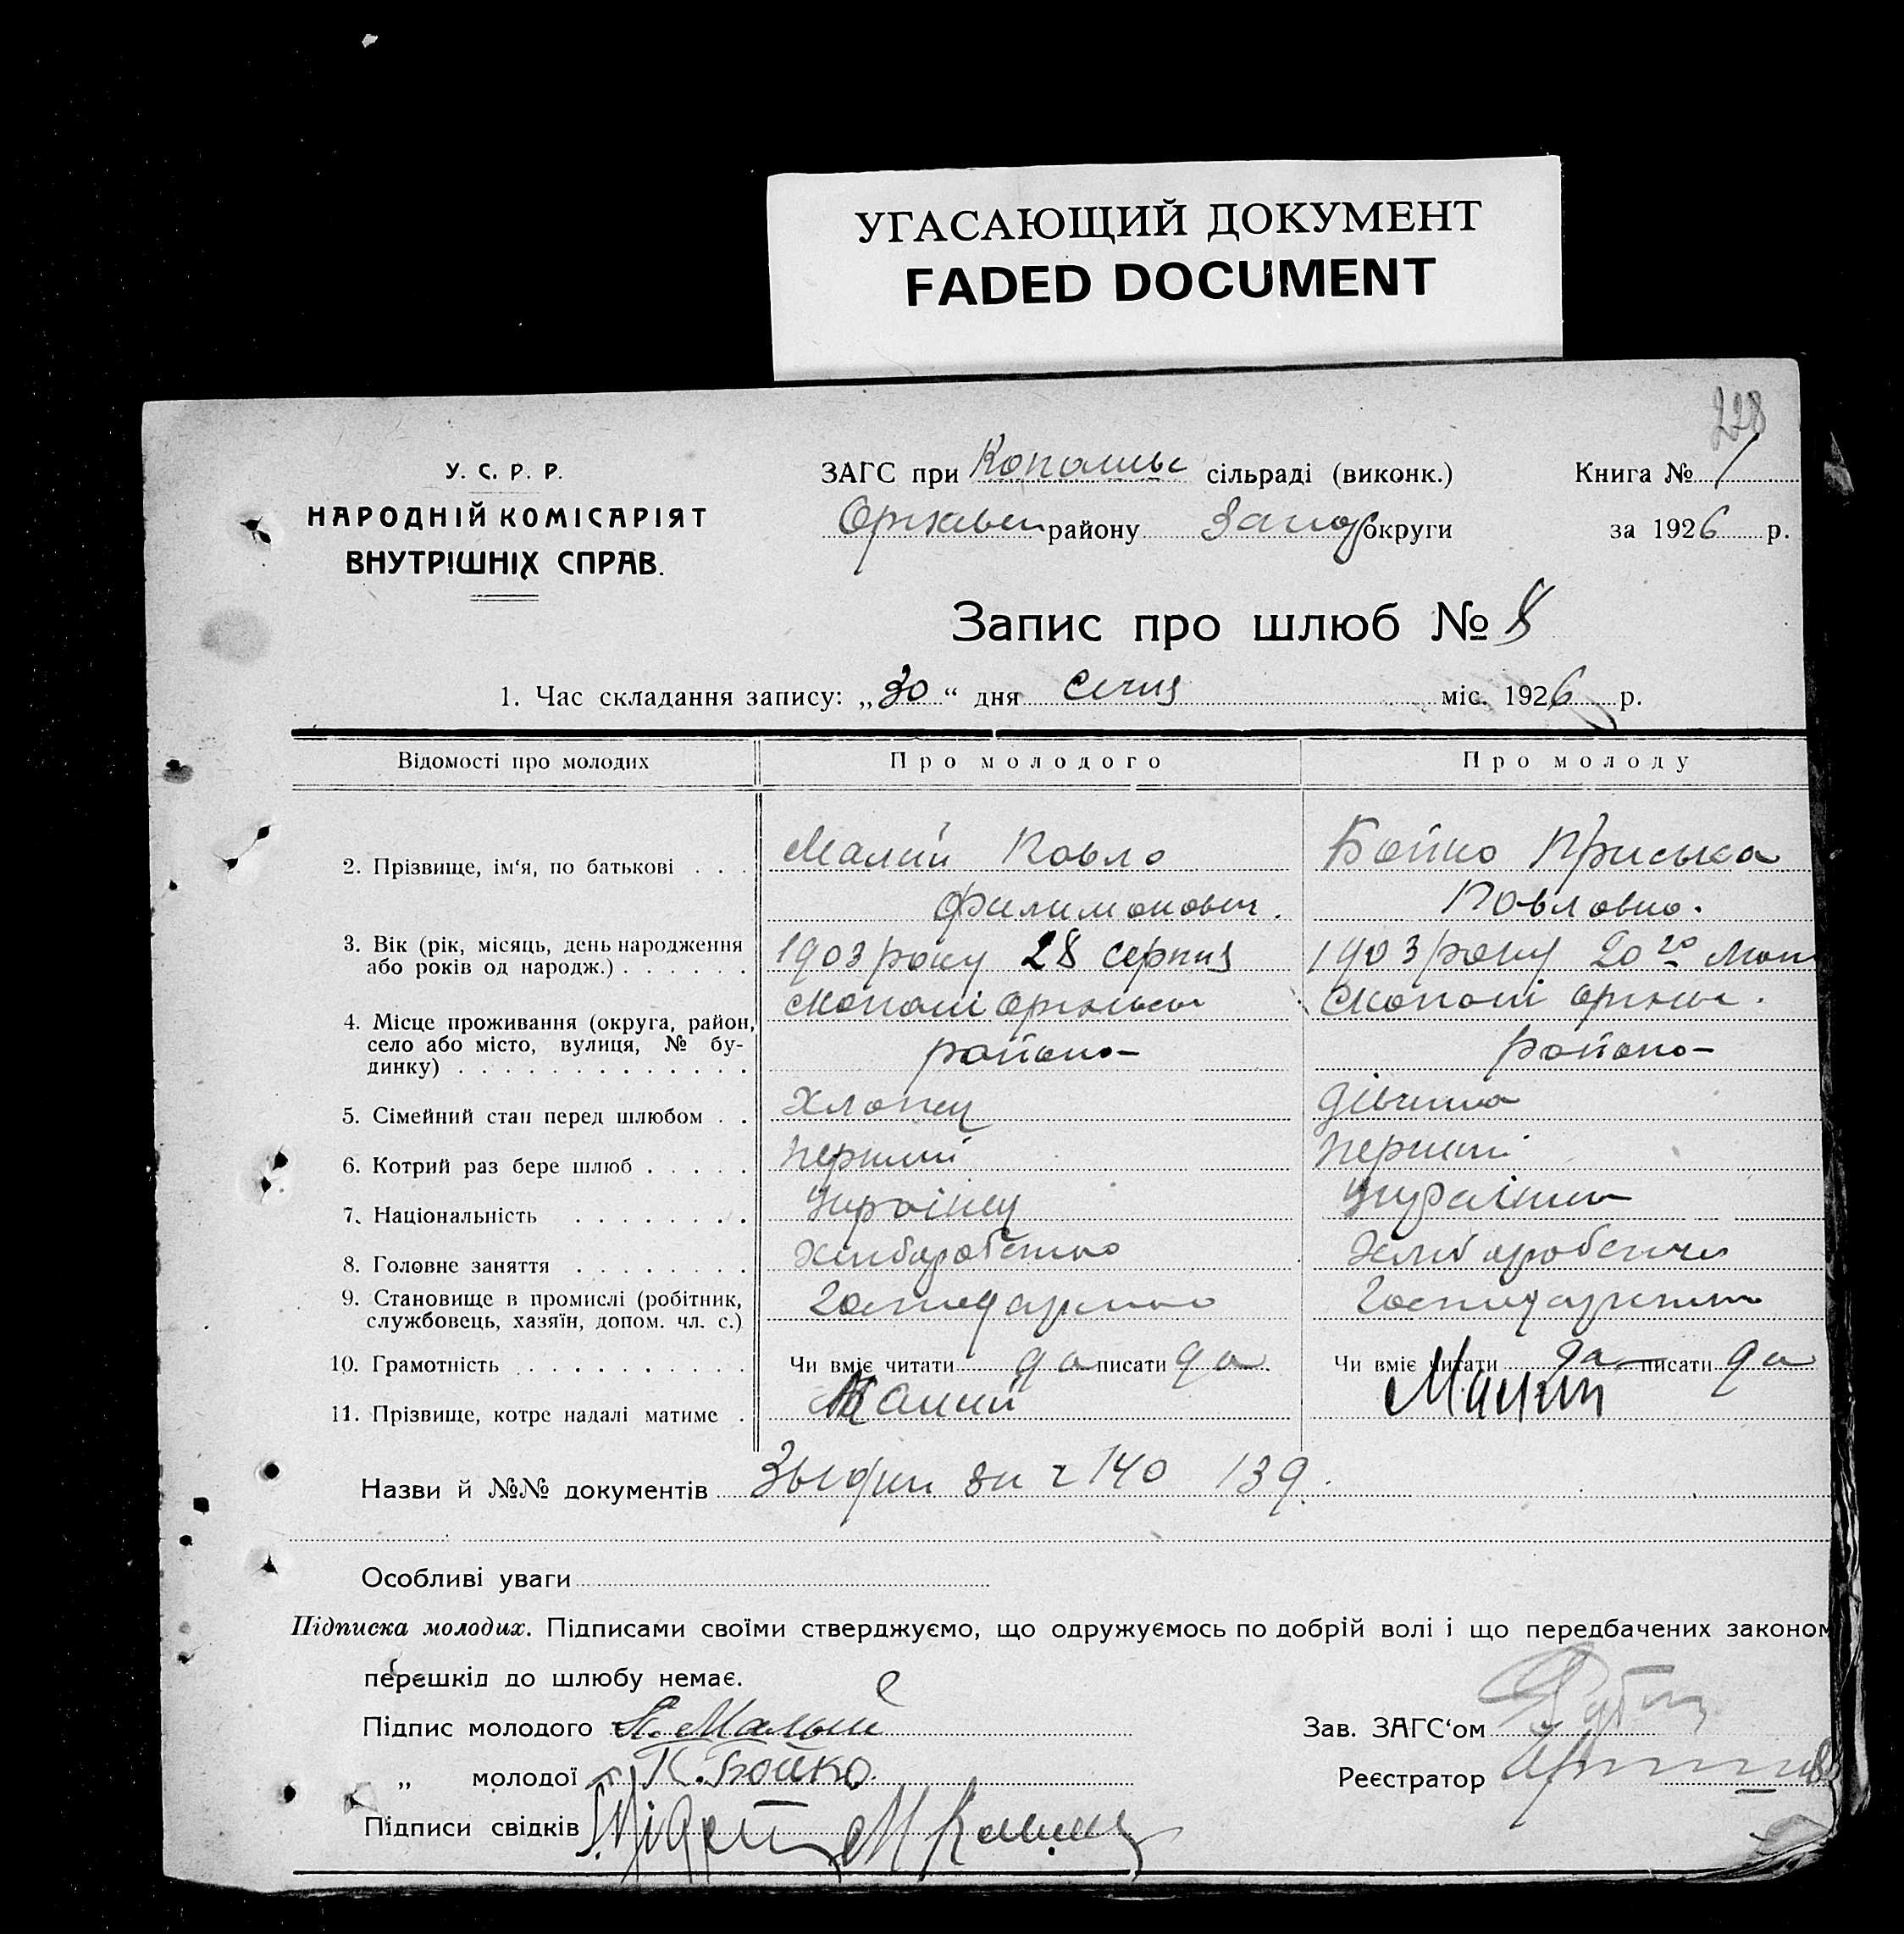 УГАСАЮЩИЙ ДОКУМЕНТ
FADED DOCUMENT
228
У. С. Р. Р.
НАРОДНІЙ КОМІСАРІЯТ
ВНУТРІШНІХ СПРАВ.
ЗАГС при сільраді (виконк.)
району округи
Книга № 1
за 1926 р.
Запис про шлюб № 8
1. Час складання запису: „30“ дня Січня міс. 1926 р.
Відомості про молодих Про молодого Про молоду
2. Прізвище, ім‘я, по батькові . . . Малий Павло Бойко Приська
Филимонович. Павловна.
3. Вік (рік, місяць, день народження
або років од народж.) . . . . . . 1903 року 28 серпня 1903 року 20
4. Місце проживання (округа, район,
село або місто, вулиця, № бу-
динку) . . . . . . . . . . . . . района района
5. Сімейний стан перед шлюбом . . Хлопец дівчина
6. Котрий раз бере шлюб . . . . . перший перший
7. Національність . . . . . . . . Українец Українка
8. Головне заняття . . . . . . . .
9. Становище в промислі (робітник,
службовець, хазяїн, допом. чл. с.)
10. Грамотність . . . . . . . . . . Чи вміє читати да писати да Чи вміє читати да писати да
11. Прізвище, котре надалі матиме . Малий Малий
Назви й №№ документів 140 139.
Особливі уваги
Підписка молодих. Підписами своїми стверджуємо, що одружуємось по добрій волі і що передбачених законом
перешкід до шлюбу немає.
Підпис молодого П. Малый Зав. ЗАГС‘ом
„ молодої П. Бойко. Реєстратор
Підписи свідків